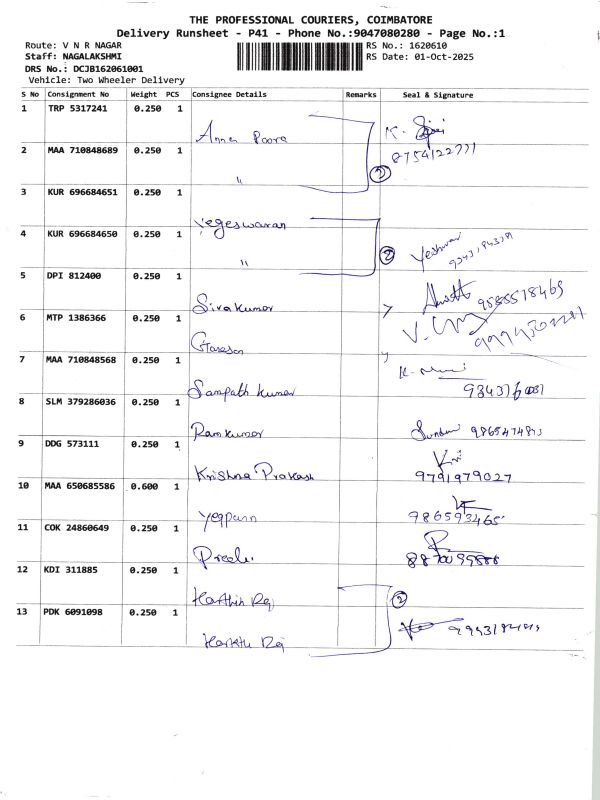 THE PROFESSIONAL COURIERS, COIMBATORE
Delivery Runsheet - P41 - Phone No.:9047080280 - Page No.:1
Route: V N R NAGAR RS No.: 1620610
Staff: NAGALAKSHMI RS Date: 01-Oct-2025
DRS No.: DCJB162061001
Vehicle: Two Wheeler Delivery
S No Consignment No Weight PCS Consignee Details Remarks Seal & Signature
1 TRP 5317241 0.250 1
Anna Poora K.
2 MAA 710848689 0.250 1 8754122771
" 2
3 KUR 696684651 0.250 1
Yegeswaran
4 KUR 696684650 0.250 1
" 2 Yeshwar
5 DPI 812400 0.250 1
Sivakumar 9585518469
6 MTP 1386366 0.250 1
Ganesan
7 MAA 710848568 0.250 1 K.
Sampath Kumar
8 SLM 379286036 0.250 1
Ramkumar
9 DDG 573111 0.250 1
Krishna Prakash 9791979027
10 MAA 650685586 0.600 1
986593465
11 COK 24860649 0.250 1
12 KDI 311885 0.250 1
2
13 PDK 6091098 0.250 1